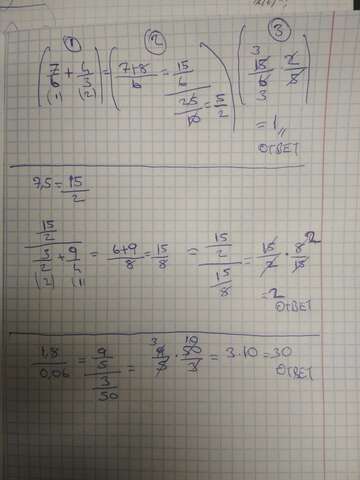 ① ② ③
(7/6 + 4/3) = (7+8/6 = 15/6) (15/6 · 2/5)
(1) (2) 3 3
25/10 = 5/2
= 1,,
ОТВЕТ
7,5 = 15/2
15/2 / 3/2 + 9/4 = 6+9/8 = 15/8 = 15/2 / 15/8 = 15/2 · 8/15 2
(2) (1)
= 2
ОТВЕТ
1,8/0,06 = 9/5 / 3/50 = 9/5 · 50/3 = 3·10 = 30
3 10
ОТВЕТ